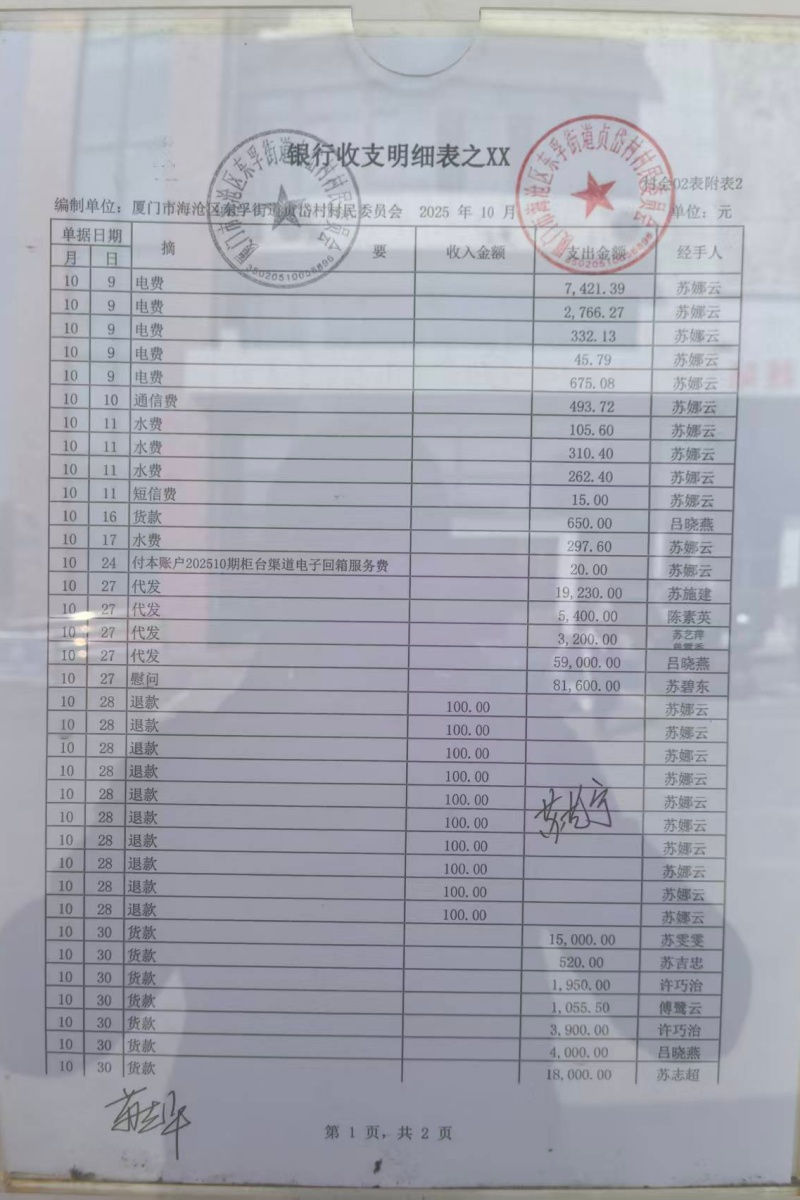 银行收支明细表之XX
村会02表附表2
编制单位：厦门市海沧区东孚街道贞岱村村民委员会 2025 年 10 月 单位：元
单据日期 摘 要 收入金额 支出金额 经手人
月 日
10 9 电费 7,421.39 苏娜云
10 9 电费 2,766.27 苏娜云
10 9 电费 332.13 苏娜云
10 9 电费 45.79 苏娜云
10 9 电费 675.08 苏娜云
10 10 通信费 493.72 苏娜云
10 11 水费 105.60 苏娜云
10 11 水费 310.40 苏娜云
10 11 水费 262.40 苏娜云
10 11 短信费 15.00 苏娜云
10 16 货款 650.00 吕晓燕
10 17 水费 297.60 苏娜云
10 24 付本账户202510期柜台渠道电子回箱服务费 20.00 苏娜云
10 27 代发 19,230.00 苏施建
10 27 代发 5,400.00 陈素英
10 27 代发 3,200.00 苏艺萍
10 27 代发 59,000.00 吕晓燕
10 27 慰问 81,600.00 苏碧东
10 28 退款 100.00 苏娜云
10 28 退款 100.00 苏娜云
10 28 退款 100.00 苏娜云
10 28 退款 100.00 苏娜云
10 28 退款 100.00 苏娜云
10 28 退款 100.00 苏娜云
10 28 退款 100.00 苏娜云
10 28 退款 100.00 苏娜云
10 28 退款 100.00 苏娜云
10 28 退款 100.00 苏娜云
10 30 货款 15,000.00 苏雯雯
10 30 货款 520.00 苏吉忠
10 30 货款 1,950.00 许巧治
10 30 货款 1,055.50 傅鹭云
10 30 货款 3,900.00 许巧治
10 30 货款 4,000.00 吕晓燕
10 30 货款 18,000.00 苏志超
第 1 页，共 2 页
厦门市海沧区东孚街道贞岱村村民委员会
厦门市海沧区东孚街道贞岱村村民委员会